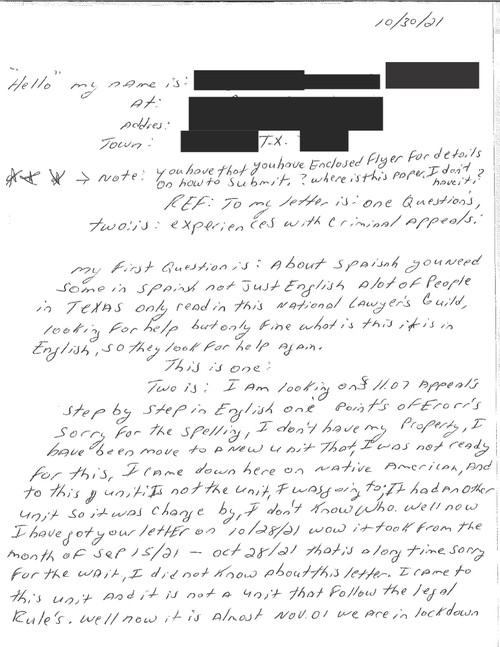 10/30/21
"Hello" my name is:
At:
Addres:
Town: T.X.
→ Note: you have that you have Enclosed Flyer For details
on how to submit.? where is this paper, I don't
have it,?
REF: To my letter is: one Questions,
two: is: experiences with Criminal Appeals.
my First Question is: About Spaisnh you need
Some in Spainsh not Just English A lot of People
in TEXAS only read in this National Lawyer's Guild,
looking For help but only Fine what is this if is in
English, so they look For help Again.
This is one:
Two is: I Am looking on § 11.07 Appeals
step by step in English one Point's of Erorr's
Sorry For the spelling, I don't have my Property, I
have been move to A New unit That, I was not ready
For this, I came down here on Native American, And
to this unit is not the unit, I was going to; It had An other
unit so it was change by, I don't know who. Well now
I have got your letter on 10/28/21 wow it took From the
month of Sep 15/21 - oct 28/21 that is a long time sorry
For the wait, I did not know About this letter. I came to
this unit And it is not A unit that Follow the legal
Rule's. Well now it is Almost Nov. 01 we are in lockdown